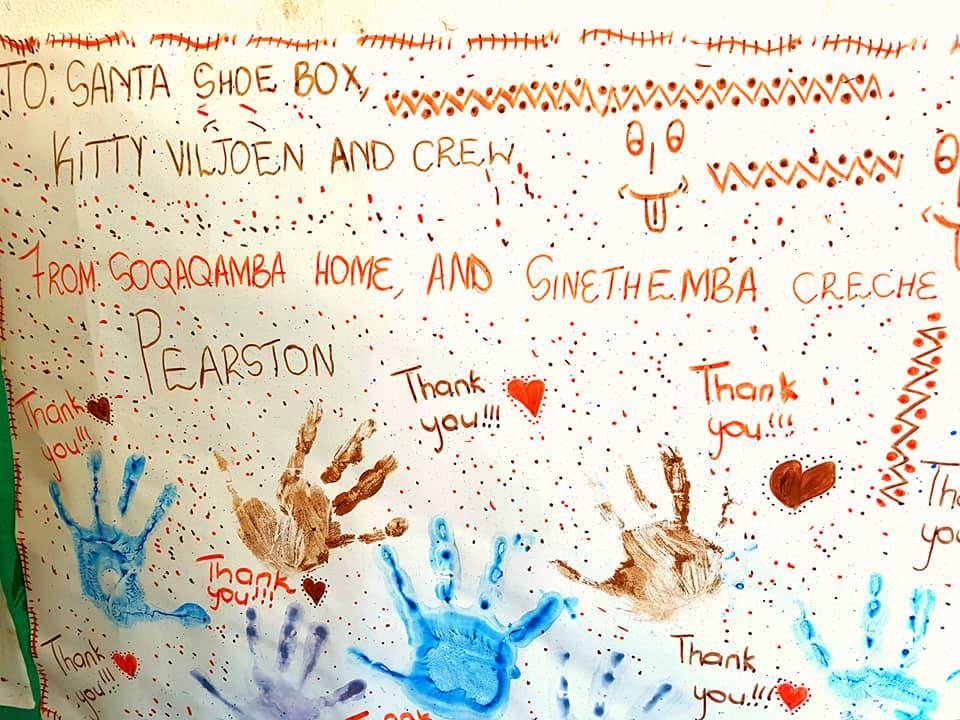 TO: SANTA SHOE BOX,
KITTY VILJOEN AND CREW
FROM: SOQAQAMBA HOME, AND SINETHEMBA CRECHE
PEARSTON
Thank
you!!!
Thank
you!!!
Thank
you!!!
Thank
you!!!
Thank
you!!!
Thank
you!!!